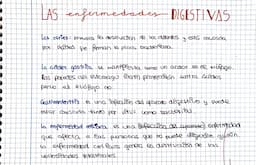 LAS enfermedades DIGESTIVAS
Las caries: provoca la destrucción de los dientes y está causada
por ácidos que forman la placa bacteriana.
La acidez gástrica se manifiesta como un ardor en el esófago.
Las paredes del estómago están protegidas contra ácidos
pero el esófago no.
Gastroenteritis es una infección del aparato digestivo y puede
estar causada tanto por virus como bacterias.
La enfermedad celíaca es una
que afecta a las personas que no puede digerir gluten.
la enfermedad celíaca genera la destrucción de las
vellosidades intestinales.